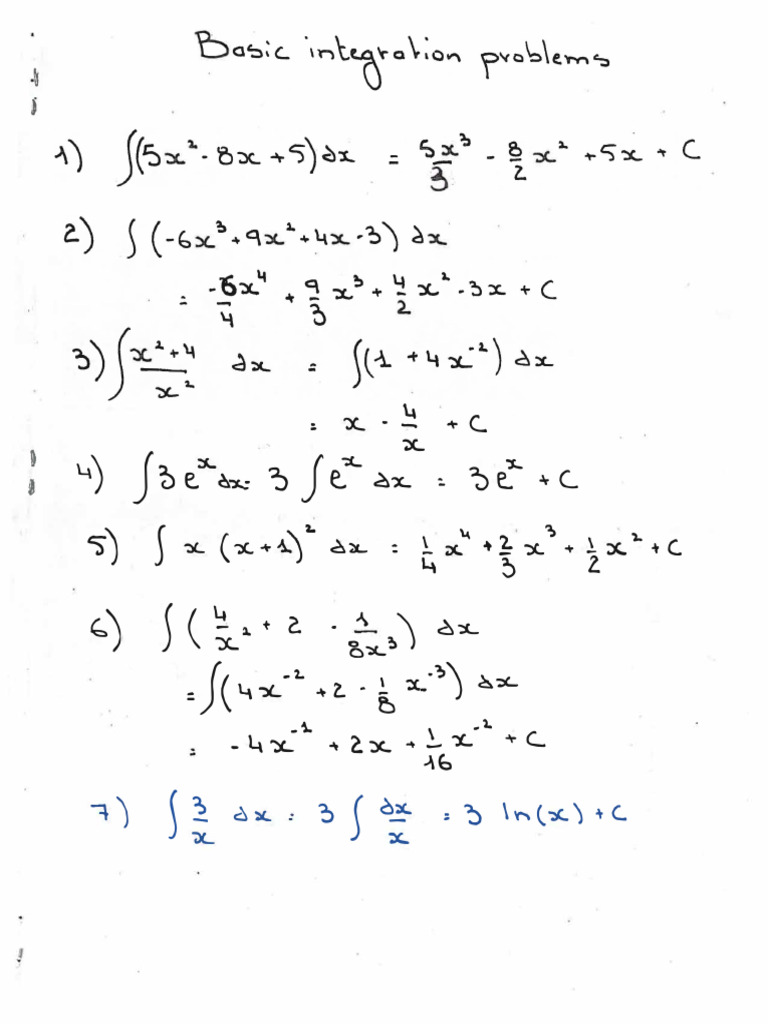 Basic integration problems
1) ∫(5x² - 8x + 5) dx = 5x³/3 - 8/2 x² + 5x + C
2) ∫(-6x³ + 9x² + 4x - 3) dx
= -6x⁴/4 + 9/3 x³ + 4/2 x² - 3x + C
3) ∫ (x² + 4)/x² dx = ∫(1 + 4x⁻²) dx
= x - 4/x + C
4) ∫3eˣ dx = 3 ∫eˣ dx = 3eˣ + C
5) ∫ x (x+1)² dx = 1/4 x⁴ + 2/3 x³ + 1/2 x² + C
6) ∫(4/x² + 2 - 1/8x³) dx
= ∫(4x⁻² + 2 - 1/8 x⁻³) dx
= -4x⁻¹ + 2x + 1/16 x⁻² + C
7) ∫ 3/x dx = 3 ∫ dx/x = 3 ln(x) + C